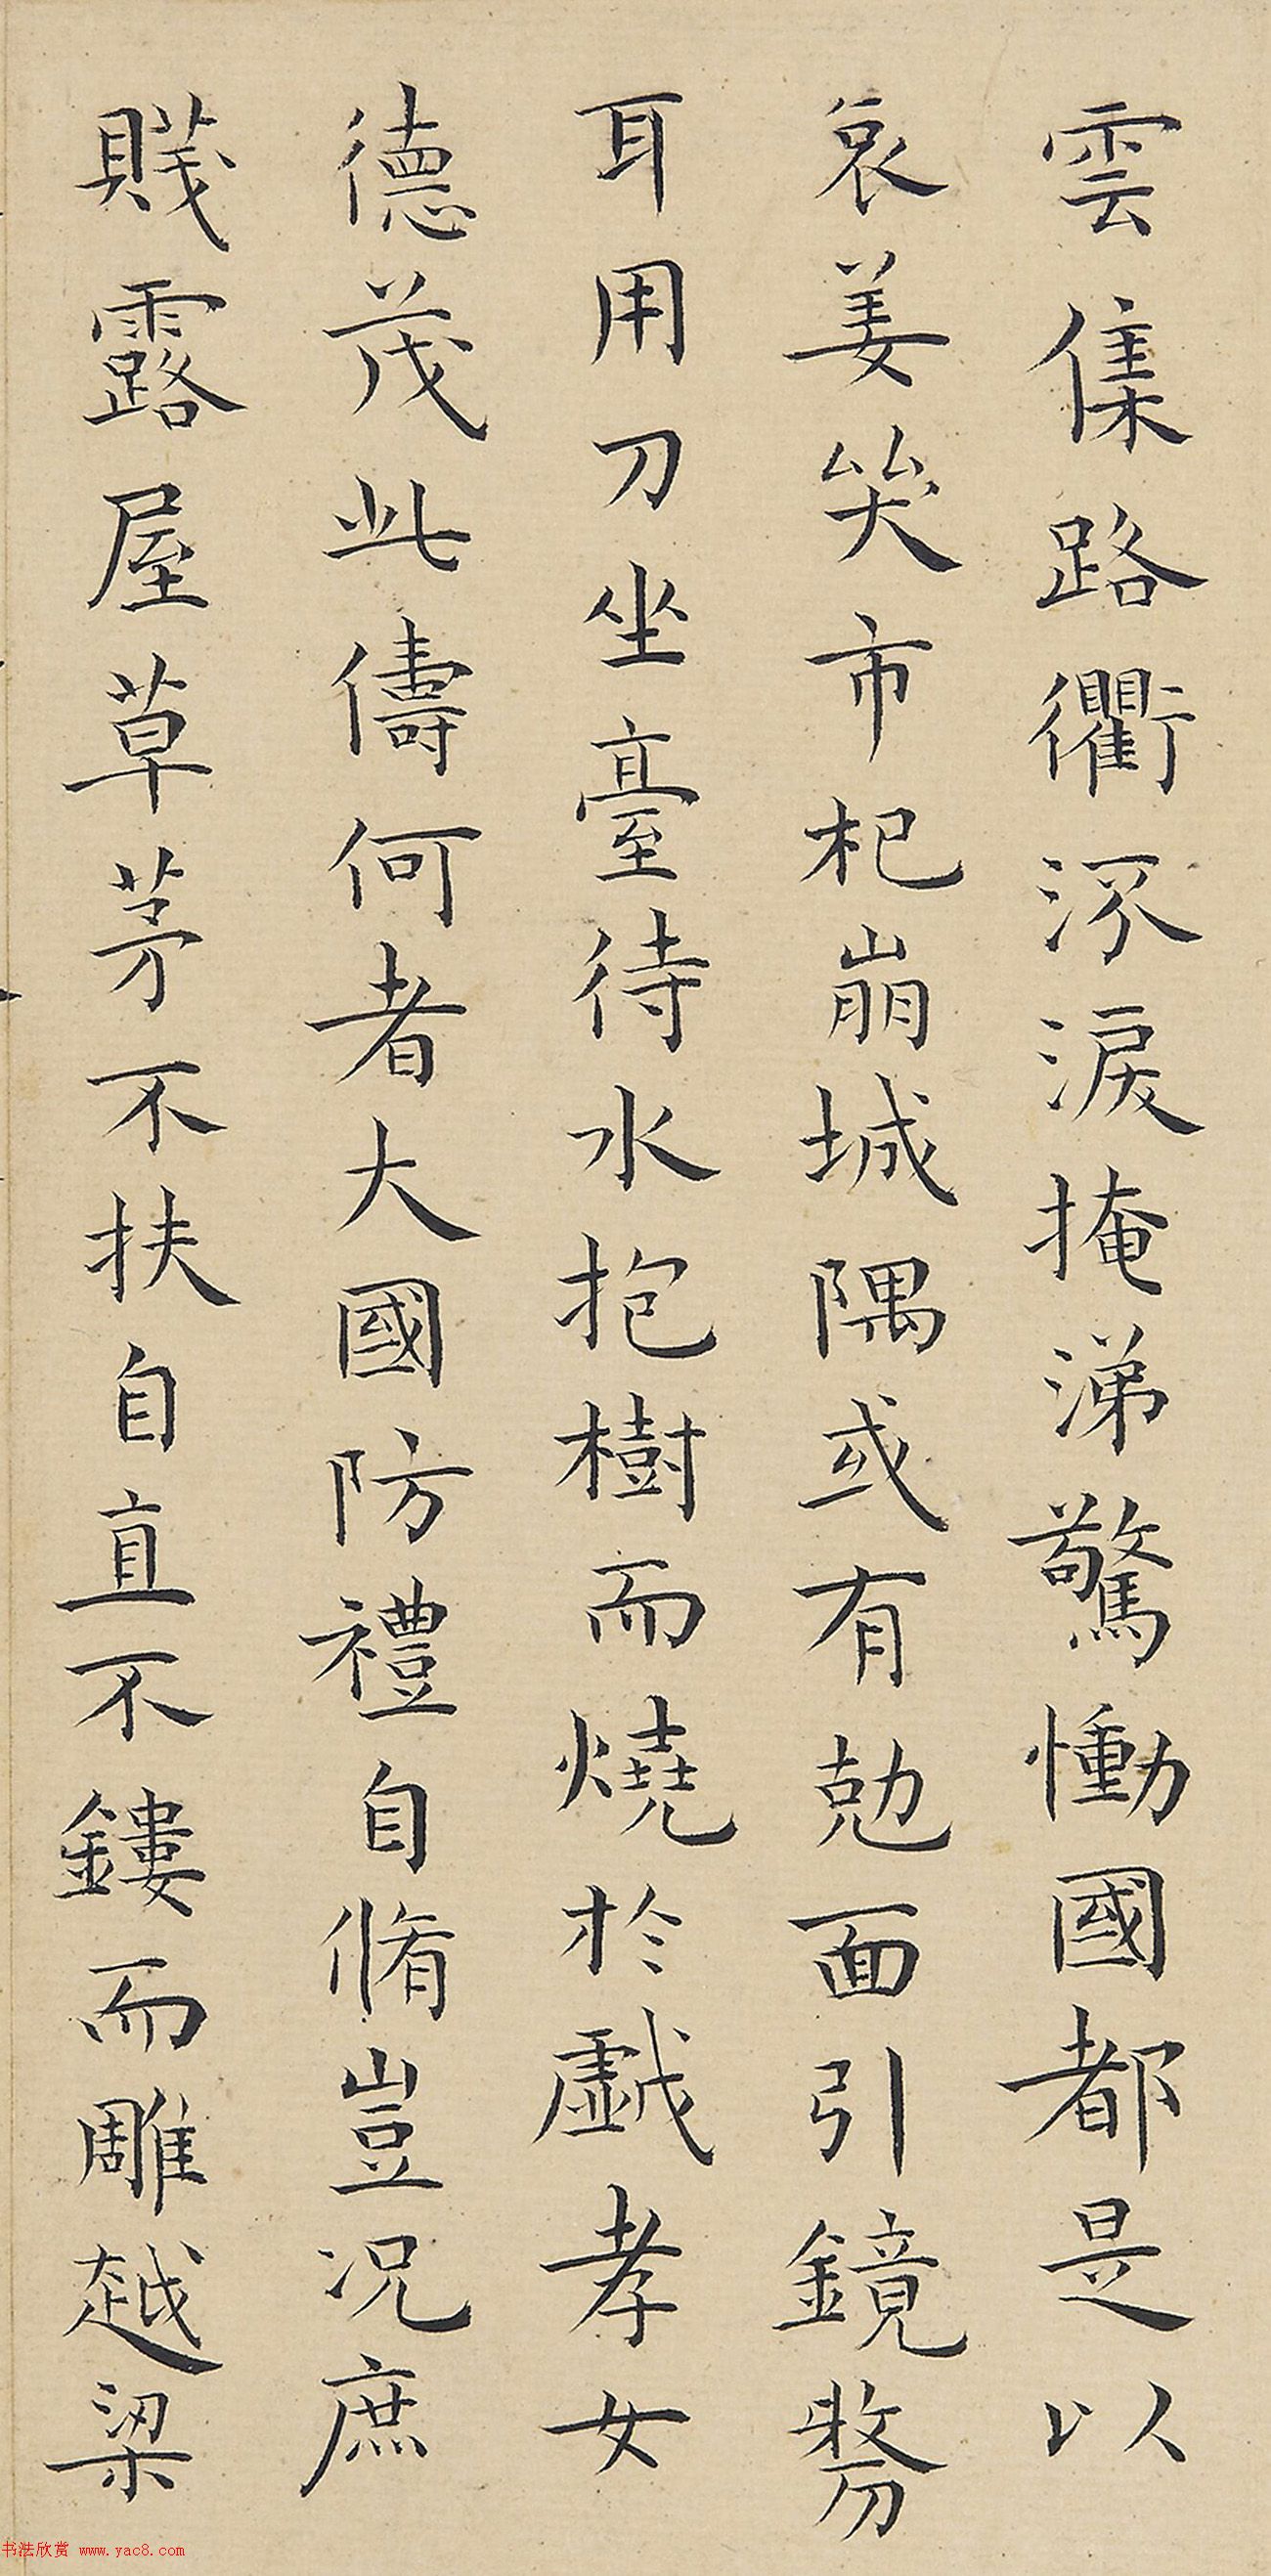 雲集路衢流淚掩涕驚慟國都是以
哀姜哭市杞崩城隅或有剋面引鏡剺
耳用刀坐臺待水抱樹而燒於戲孝女
德茂此儔何者大國防禮自脩豈況庶
賤露屋草茅不扶自直不鏤而雕越梁
书法欣赏 www.yac8.com